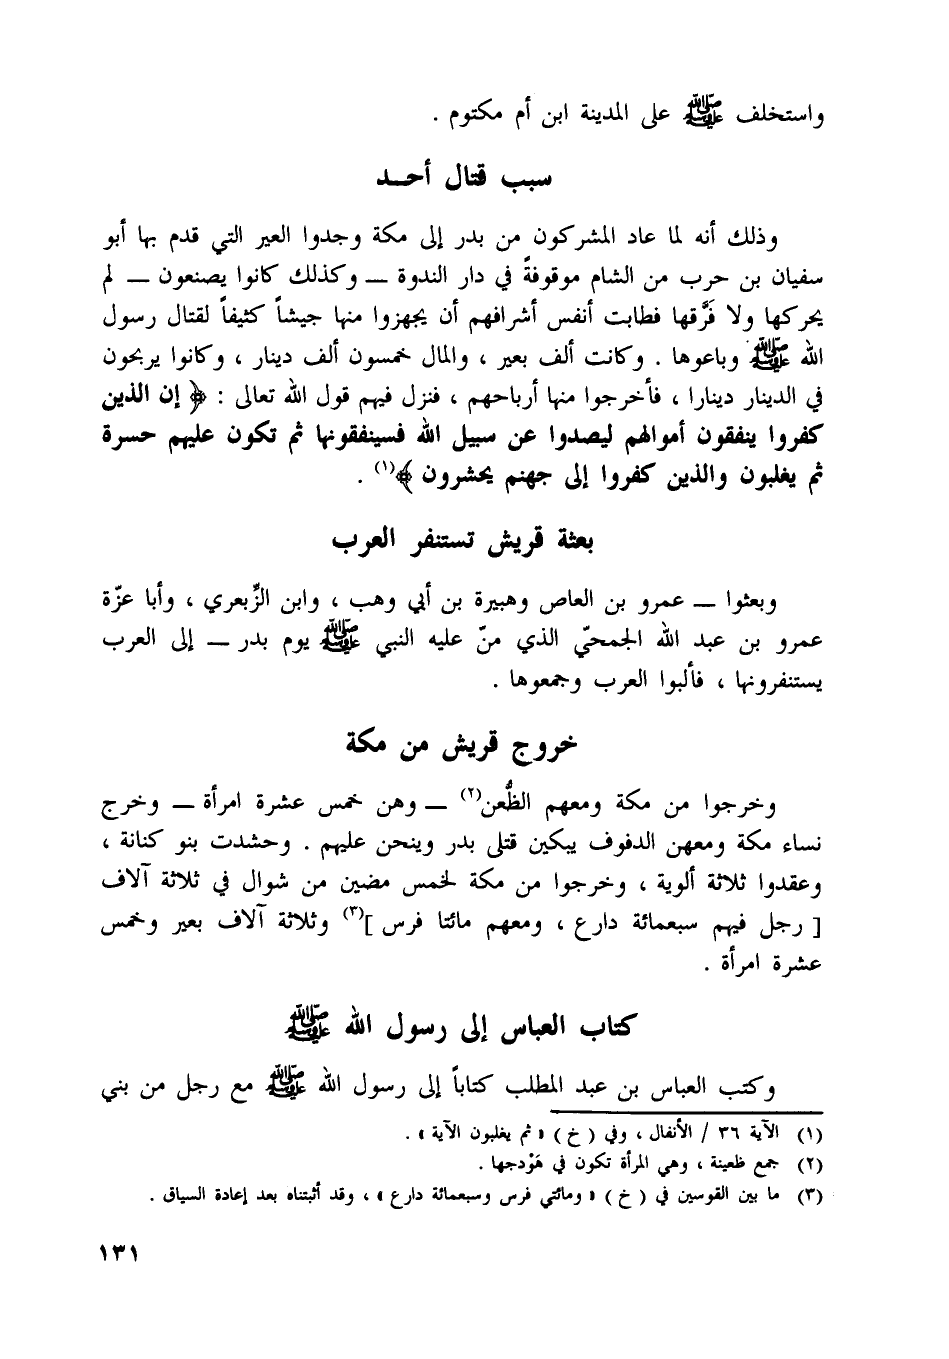 واستخلف ﷺ على المدينة ابن أم مكتوم .
سبب قتال أحــد
وذلك أنه لما عاد المشركون من بدر إلى مكة وجدوا العير التي قدم بها أبو
سفيان بن حرب من الشام موقوفةً في دار الندوة ــ وكذلك كانوا يصنعون ــ لم
يحركها ولا فَرَّقها فطابت أنفس أشرافهم أن يجهزوا منها جيشاً كثيفاً لقتال رسول
الله ﷺ وباعوها . وكانت ألف بعير ، والمال خمسون ألف دينار ، وكانوا يربحون
في الدينار دينارا ، فأخرجوا منها أرباحهم ، فنزل فيهم قول الله تعالى : ﴿ إن الذين
كفروا ينفقون أموالهم ليصدوا عن سبيل الله فسينفقونها ثم تكون عليهم حسرة
ثم يغلبون والذين كفروا إلى جهنم يحشرون ﴾(١) .
بعثة قريش تستنفر العرب
وبعثوا ــ عمرو بن العاص وهبيرة بن أبي وهب ، وابن الزِّبعري ، وأبا عزّة
عمرو بن عبد الله الجمحيّ الذي منّ عليه النبي ﷺ يوم بدر ــ إلى العرب
يستنفرونها ، فألبوا العرب وجمعوها .
خروج قريش من مكة
وخرجوا من مكة ومعهم الظُّعن(٢) ــ وهن خمس عشرة امرأة ــ وخرج
نساء مكة ومعهن الدفوف يبكين قتلى بدر وينحن عليهم . وحشدت بنو كنانة ،
وعقدوا ثلاثة ألوية ، وخرجوا من مكة لخمس مضين من شوال في ثلاثة آلاف
[ رجل فيهم سبعمائة دارع ، ومعهم مائتا فرس ](٣) وثلاثة آلاف بعير وخمس
عشرة امرأة .
كتاب العباس إلى رسول الله ﷺ
وكتب العباس بن عبد المطلب كتاباً إلى رسول الله ﷺ مع رجل من بني
(١) الآية ٣٦ / الأنفال ، وفي ( خ ) « ثم يغلبون الآية » .
(٢) جمع ظعينة ، وهي المرأة تكون في هَوْدجها .
(٣) ما بين القوسين في ( خ ) « ومائتي فرس وسبعمائة دارع » ، وقد أثبتناه بعد إعادة السياق .
١٣١